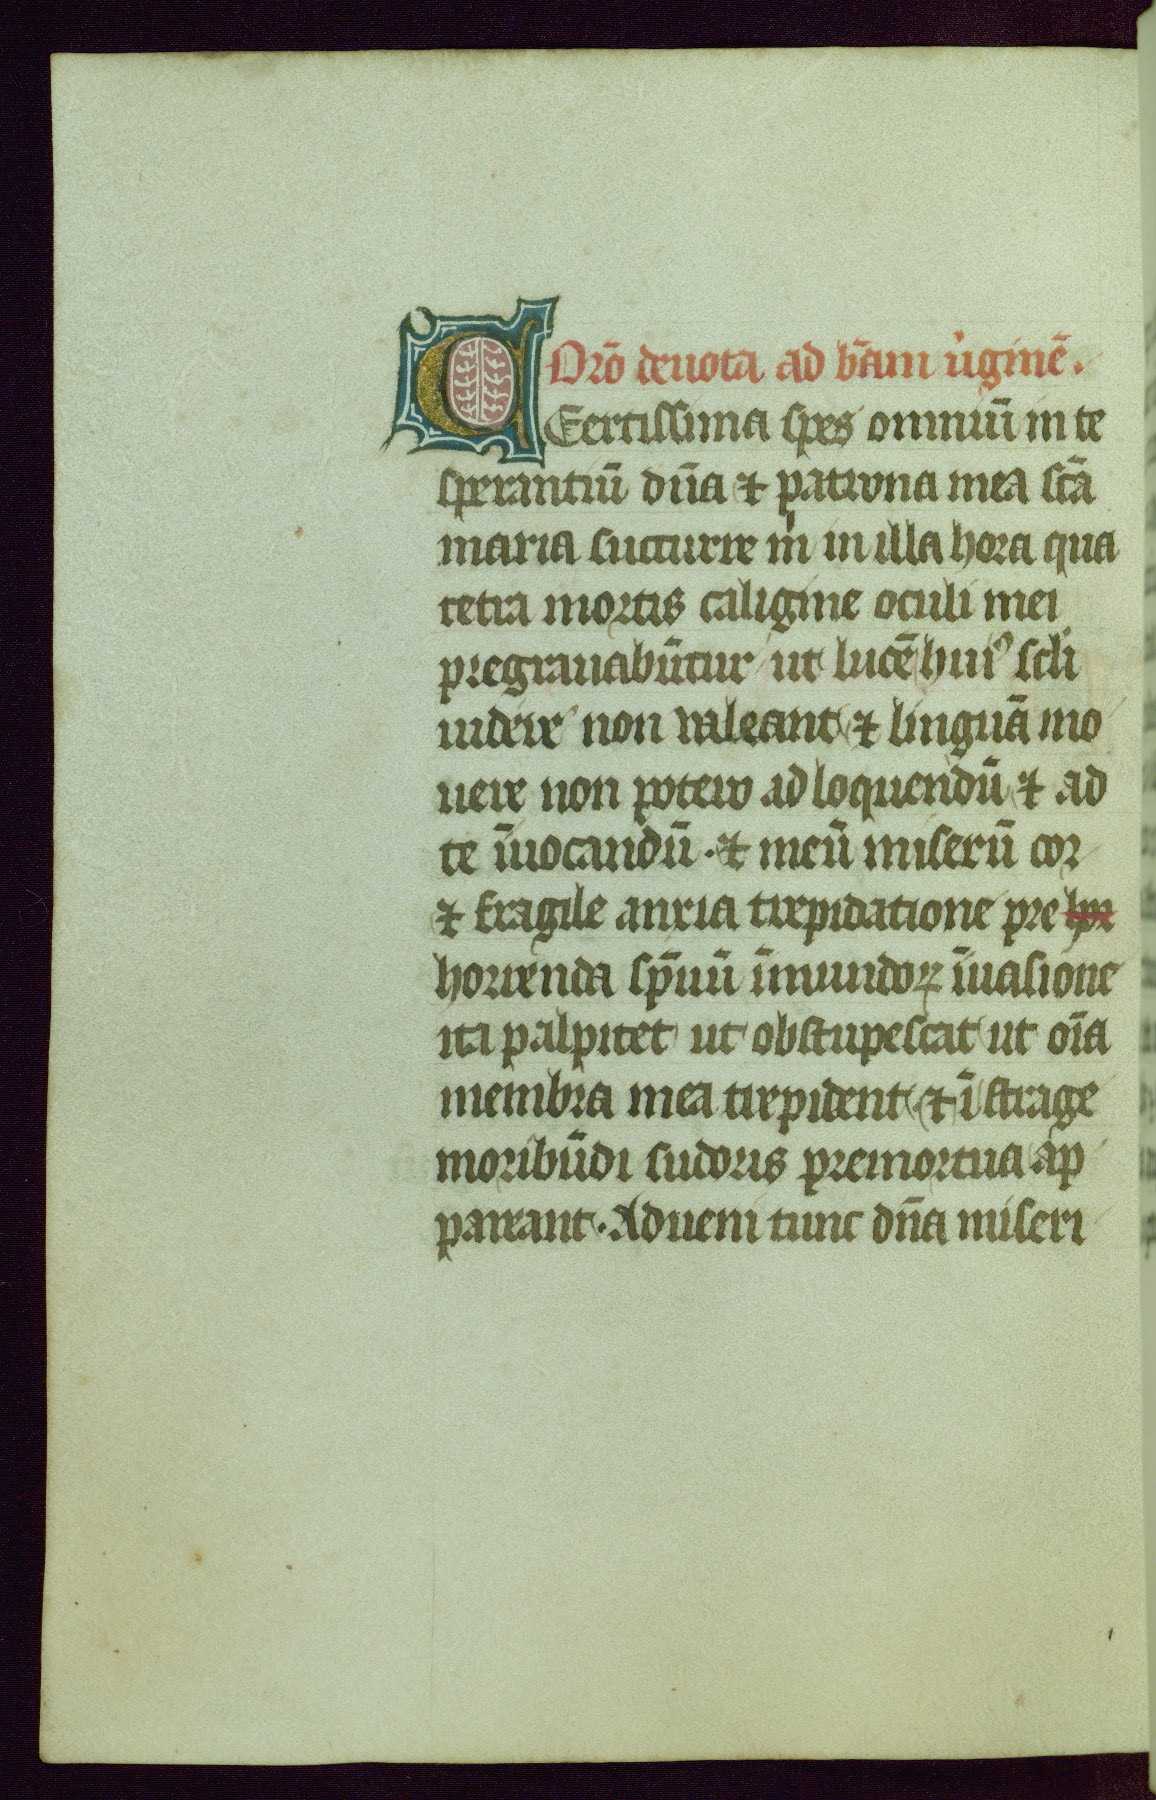 Orō deuota ad b̄am ůginē.
CEertissima spes omniū in te
sperantiū dn̄a ⁊ patrona mea sc̄a
maria succurre m̍ in illa hora qua
tetra mortis caligine oculi mei
pregrauabūtur ut lucē huiꝰ scl̍i
uidere non ualeant ⁊ linguā mo
uere non potero ad loquendū ⁊ ad
te īuocandū · ⁊ meū miserū cor
⁊ fragile anxia trepidatione pre
horrenda sp̄uū īmundoꝝ īuasione
ita palpitet ut obstupescat ut oīa
membra mea trepident ⁊ ī strage
moribūdi sudoris premortua ap
pareant · Adueni tunc dn̄a miseri